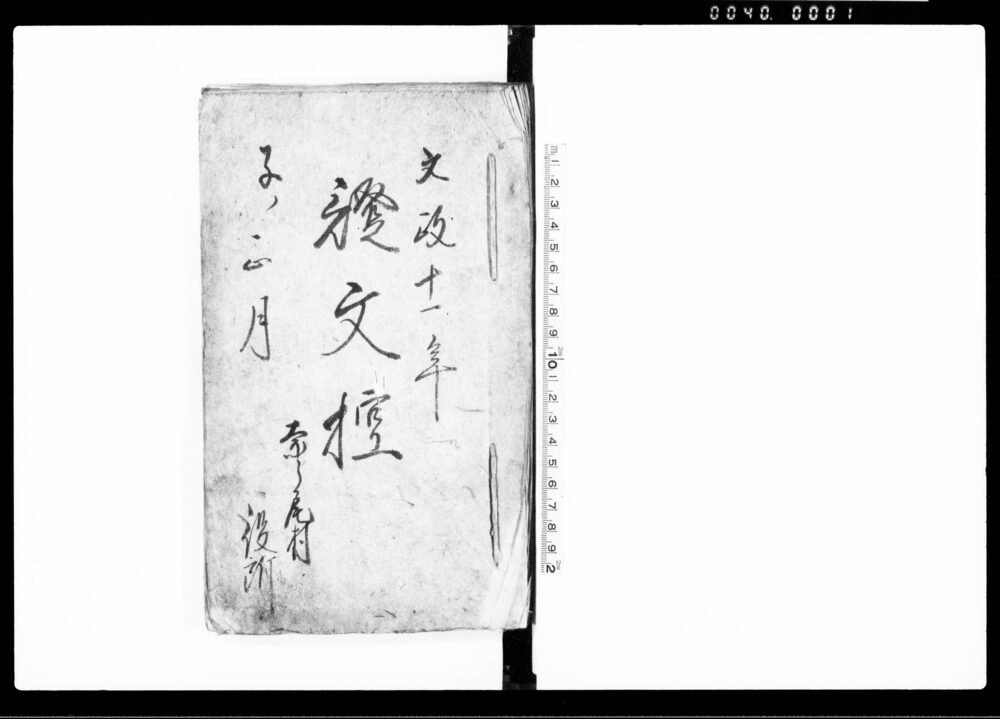 0040. 0001
文政十一年
證文控
子ノ正月
尾村
役所
1 2 3 4 5 6 7 8 9 10 1 2 3 4 5 6 7 8 9 2